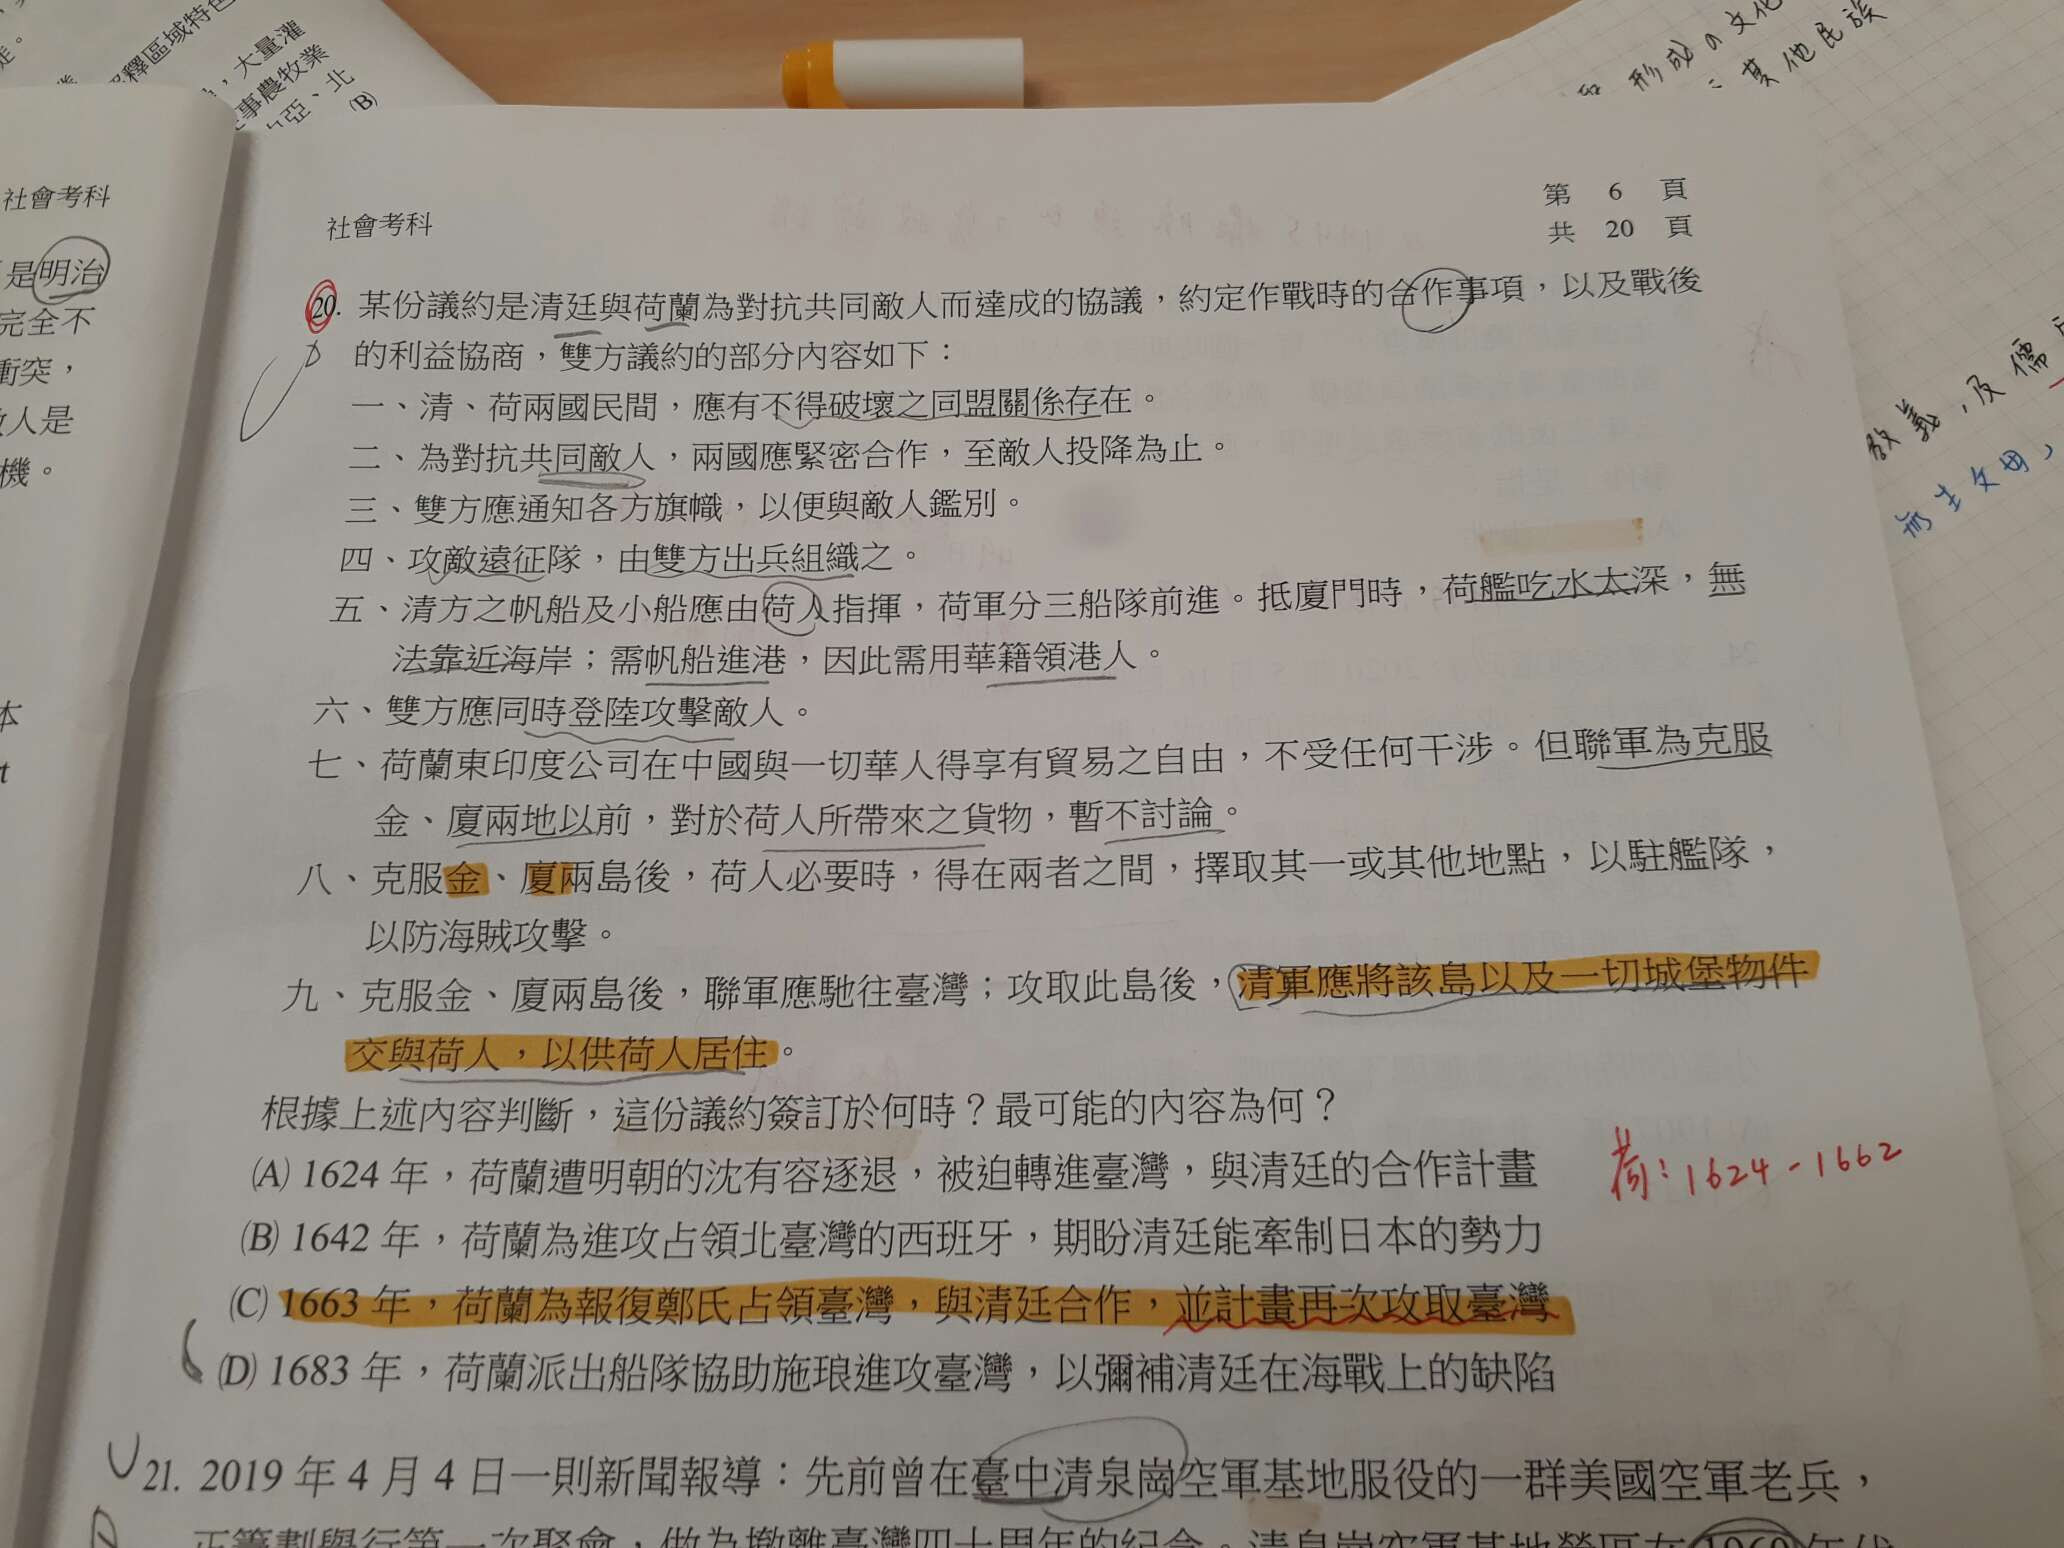 解釋區域特色
，大量灌
事農牧業
亞、北
(B)
形成の文化
：其他民族
社會考科
是明治
完全不
衝突，
敵人是
機。
本
社會考科
第 6 頁
共 20 頁
20. 某份議約是清廷與荷蘭為對抗共同敵人而達成的協議，約定作戰時的合作事項，以及戰後
的利益協商，雙方議約的部分內容如下：
一、清、荷兩國民間，應有不得破壞之同盟關係存在。
二、為對抗共同敵人，兩國應緊密合作，至敵人投降為止。
三、雙方應通知各方旗幟，以便與敵人鑑別。
四、攻敵遠征隊，由雙方出兵組織之。
五、清方之帆船及小船應由荷人指揮，荷軍分三船隊前進。抵廈門時，荷艦吃水太深，無
法靠近海岸；需帆船進港，因此需用華籍領港人。
六、雙方應同時登陸攻擊敵人。
七、荷蘭東印度公司在中國與一切華人得享有貿易之自由，不受任何干涉。但聯軍為克服
金、廈兩地以前，對於荷人所帶來之貨物，暫不討論。
八、克服金、廈兩島後，荷人必要時，得在兩者之間，擇取其一或其他地點，以駐艦隊，
以防海賊攻擊。
九、克服金、廈兩島後，聯軍應馳往臺灣；攻取此島後，清軍應將該島以及一切城堡物件
交與荷人，以供荷人居住。
根據上述內容判斷，這份議約簽訂於何時？最可能的內容為何？
(A) 1624 年，荷蘭遭明朝的沈有容逐退，被迫轉進臺灣，與清廷的合作計畫
(B) 1642 年，荷蘭為進攻占領北臺灣的西班牙，期盼清廷能牽制日本的勢力
(C) 1663 年，荷蘭為報復鄭氏占領臺灣，與清廷合作，並計畫再次攻取臺灣
(D) 1683 年，荷蘭派出船隊協助施琅進攻臺灣，以彌補清廷在海戰上的缺陷
荷：1624-1662
教義，及儒
無生父母，
21. 2019 年 4 月 4 日一則新聞報導：先前曾在臺中清泉崗空軍基地服役的一群美國空軍老兵，
正籌劃舉行第一次聚會，做為撤離臺灣四十周年的紀念。清泉崗空軍基地營區在 1960 年代